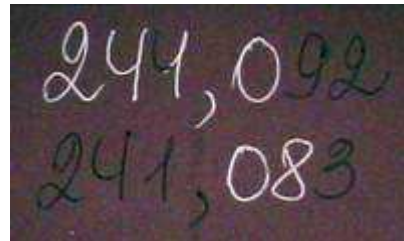 241,092
241,083